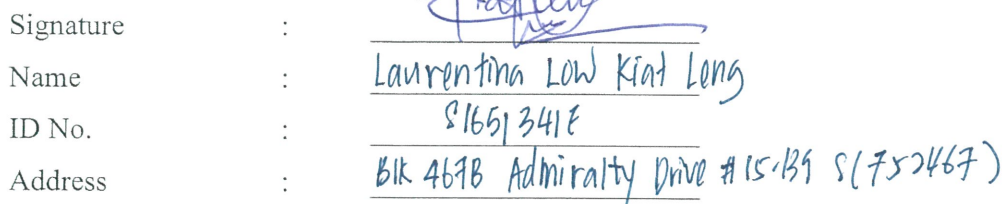 Signature :
Name : Laurentina Low Kiat Leng
ID No. : S1651341E
Address : Blk 467B Admiralty Drive #15-139 S(752467)